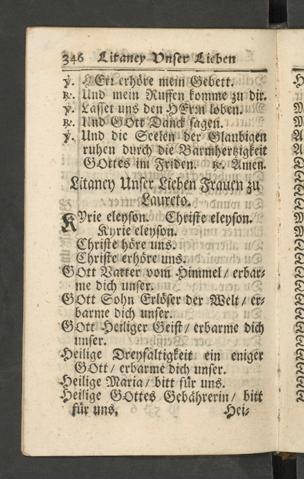 346 Litaney Unser Lieben
℣. HErr erhöre mein Gebett.
℟. Und mein Ruffen komme zu dir.
℣. Lasset uns den HErrn loben.
℟. Und GOtt Danck sagen.
℣. Und die Seelen der Glaubigen
ruhen durch die Barmhertzigkeit
GOttes im Friden. ℟. Amen.
Litaney Unser Lieben Frauen zu
Laureto.
KYrie eleyson. Christe eleyson.
Kyrie eleyson.
Christe höre uns.
Christe erhöre uns.
GOtt Vatter vom Himmel / erbar-
me dich unser.
GOtt Sohn Erlöser der Welt / er-
barme dich unser.
GOtt Heiliger Geist / erbarme dich
unser.
Heilige Dreyfaltigkeit ein einiger
GOtt / erbarme dich unser.
Heilige Maria / bitt für uns.
Heilige GOttes Gebährerin / bitt
für uns.
Hei-